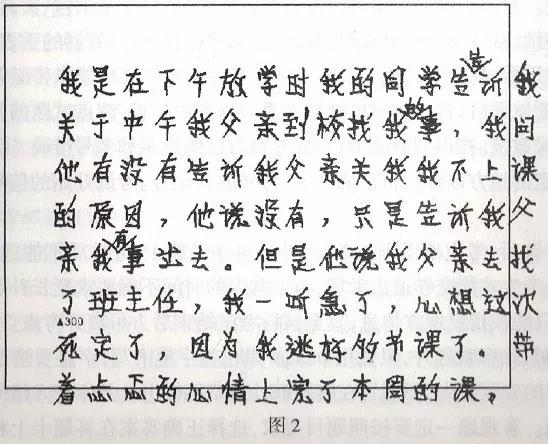 我是在下午放学时我的同学告诉我
关于中午我父亲到校找我故事,我问
他有没有告诉我父亲关我我不上课
的原因,他说没有,只是告诉我父
亲我有事出去。但是他说我父亲去找
了班主任,我一听急了,心想这次
死定了,因为我逃好的节课了。带
着忐忑的心情上完了本周的课,
300
图2